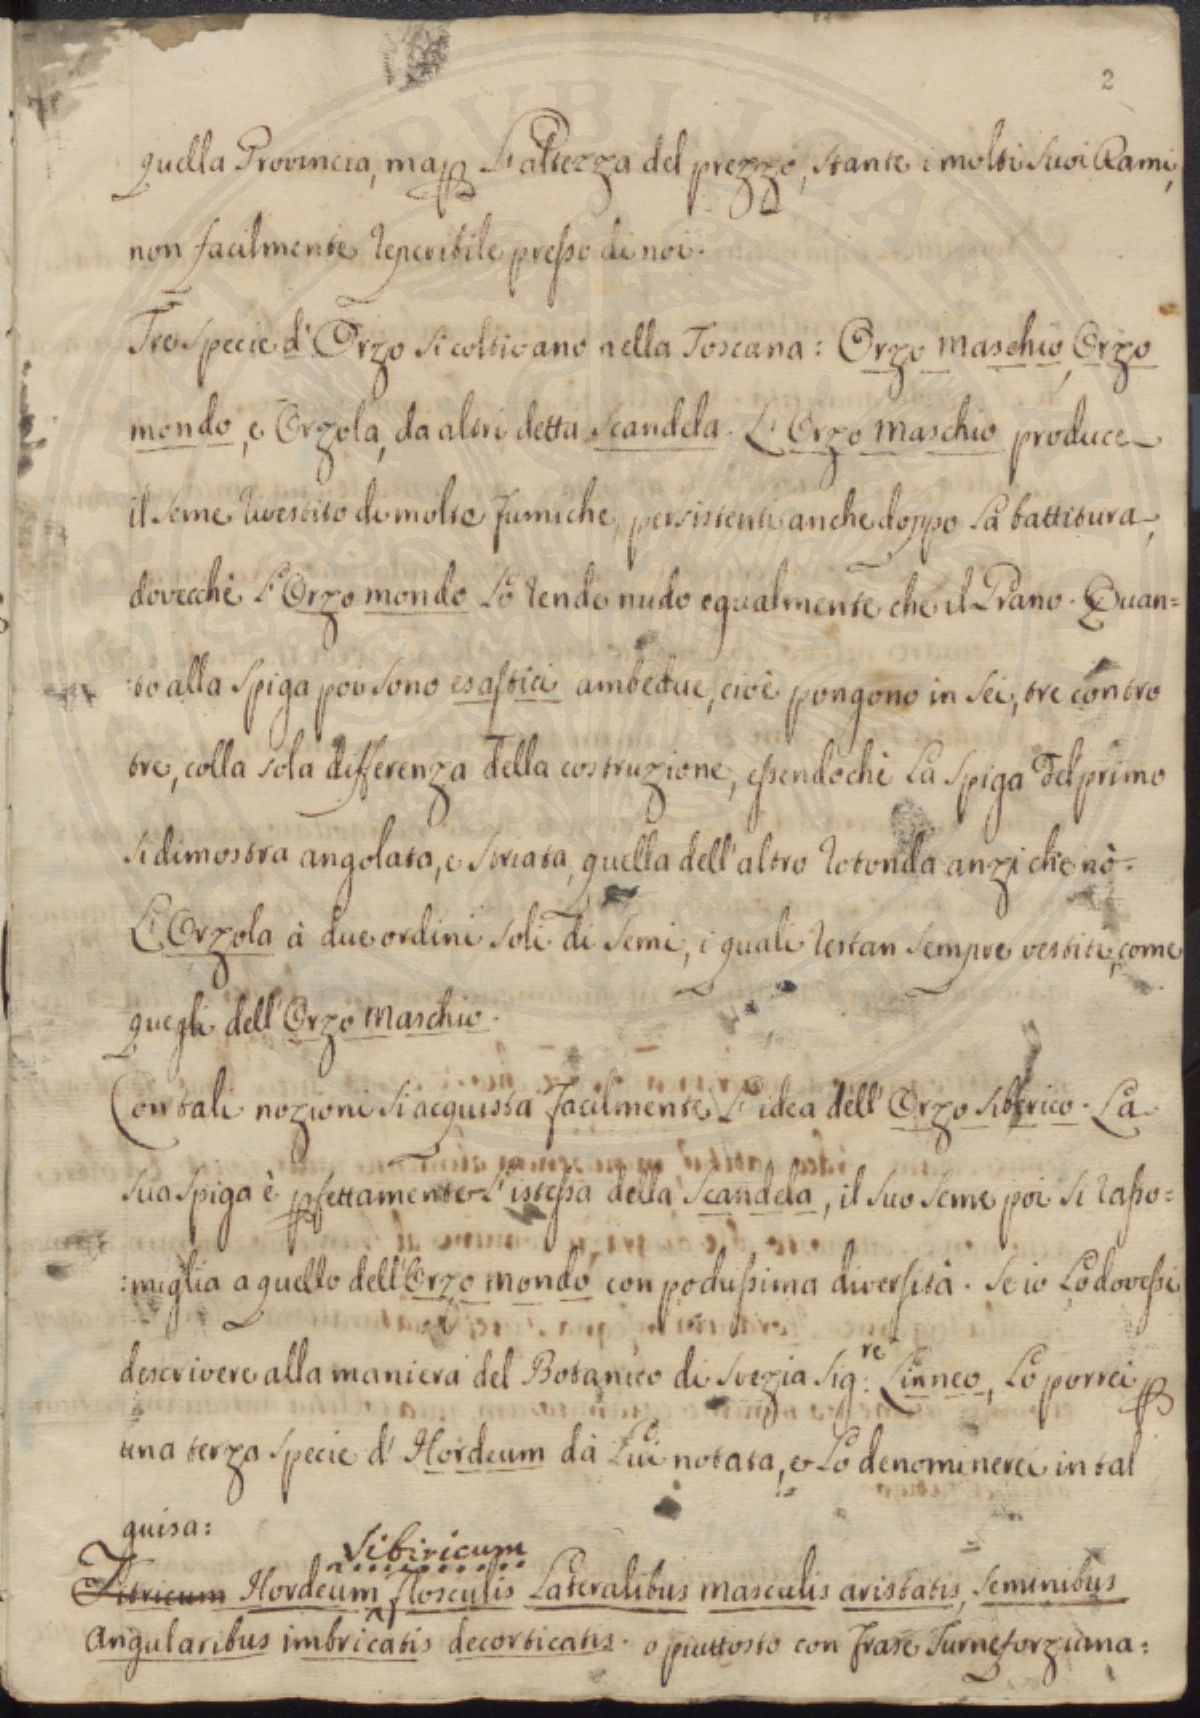 2
quella Provincia, ma p L'altezza del prezzo, stante i molti suoi Rami,
non facilmente reperibile presso di noi.
Tre specie d'Orzo si coltivano nella Toscana: Orzo maschio, Orzo
mondo, e Orzola, da altri detta Scandela. L'Orzo maschio produce
il seme rivestito di molte fumiche, persistenti anche doppo la battitura,
dovecchè l'Orzo mondo lo rende nudo egualmente che il Grano. Quan=
:to alla spiga poi sono esastici ambedue, cioè pongono in sei, tre contro
tre, colla sola differenza della costruzione, essendochè la spiga del primo
si dimostra angolata, e striata, quella dell'altro rotonda anzi che nò.
L'Orzola à due ordini soli di semi, i quali restan sempre vestiti, come
quegli dell'Orzo maschio.
Con tali nozioni si acquista facilmente l'idea dell'Orzo siberico. La
sua spiga è pfettamente l'istessa della Scandela, il suo seme poi si rasso=
:miglia a quello dell'Orzo mondo con pochissima diversità. Se io lo dovessi
descrivere alla maniera del Botanico di Svezia Sig:re Linneo, lo porrei p
una terza specie d'Hordeum da Lui notata, e lo denominerei in tal
guisa:
Sibiricum
Titricum Hordeum flosculis Lateralibus masculis aristatis, seminibus
angularibus imbricatis decorticatis. o piuttosto con frase Turneforziana: